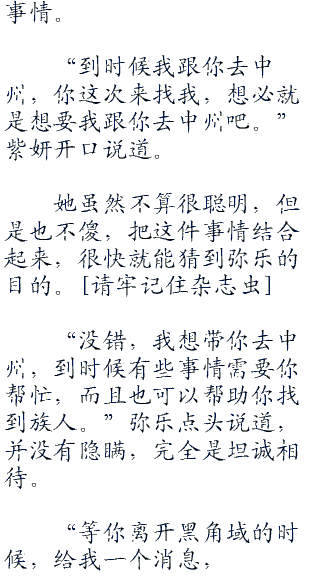 事情。
“到时候我跟你去中
州，你这次来找我，想必就
是想要我跟你去中州吧。”
紫妍开口说道。
她虽然不算很聪明，但
是也不傻，把这件事情结合
起来，很快就能猜到弥乐的
目的。[请牢记住杂志虫]
“没错，我想带你去中
州，到时候有些事情需要你
帮忙，而且也可以帮助你找
到族人。”弥乐点头说道，
并没有隐瞒，完全是坦诚相
待。
“等你离开黑角域的时
候，给我一个消息，